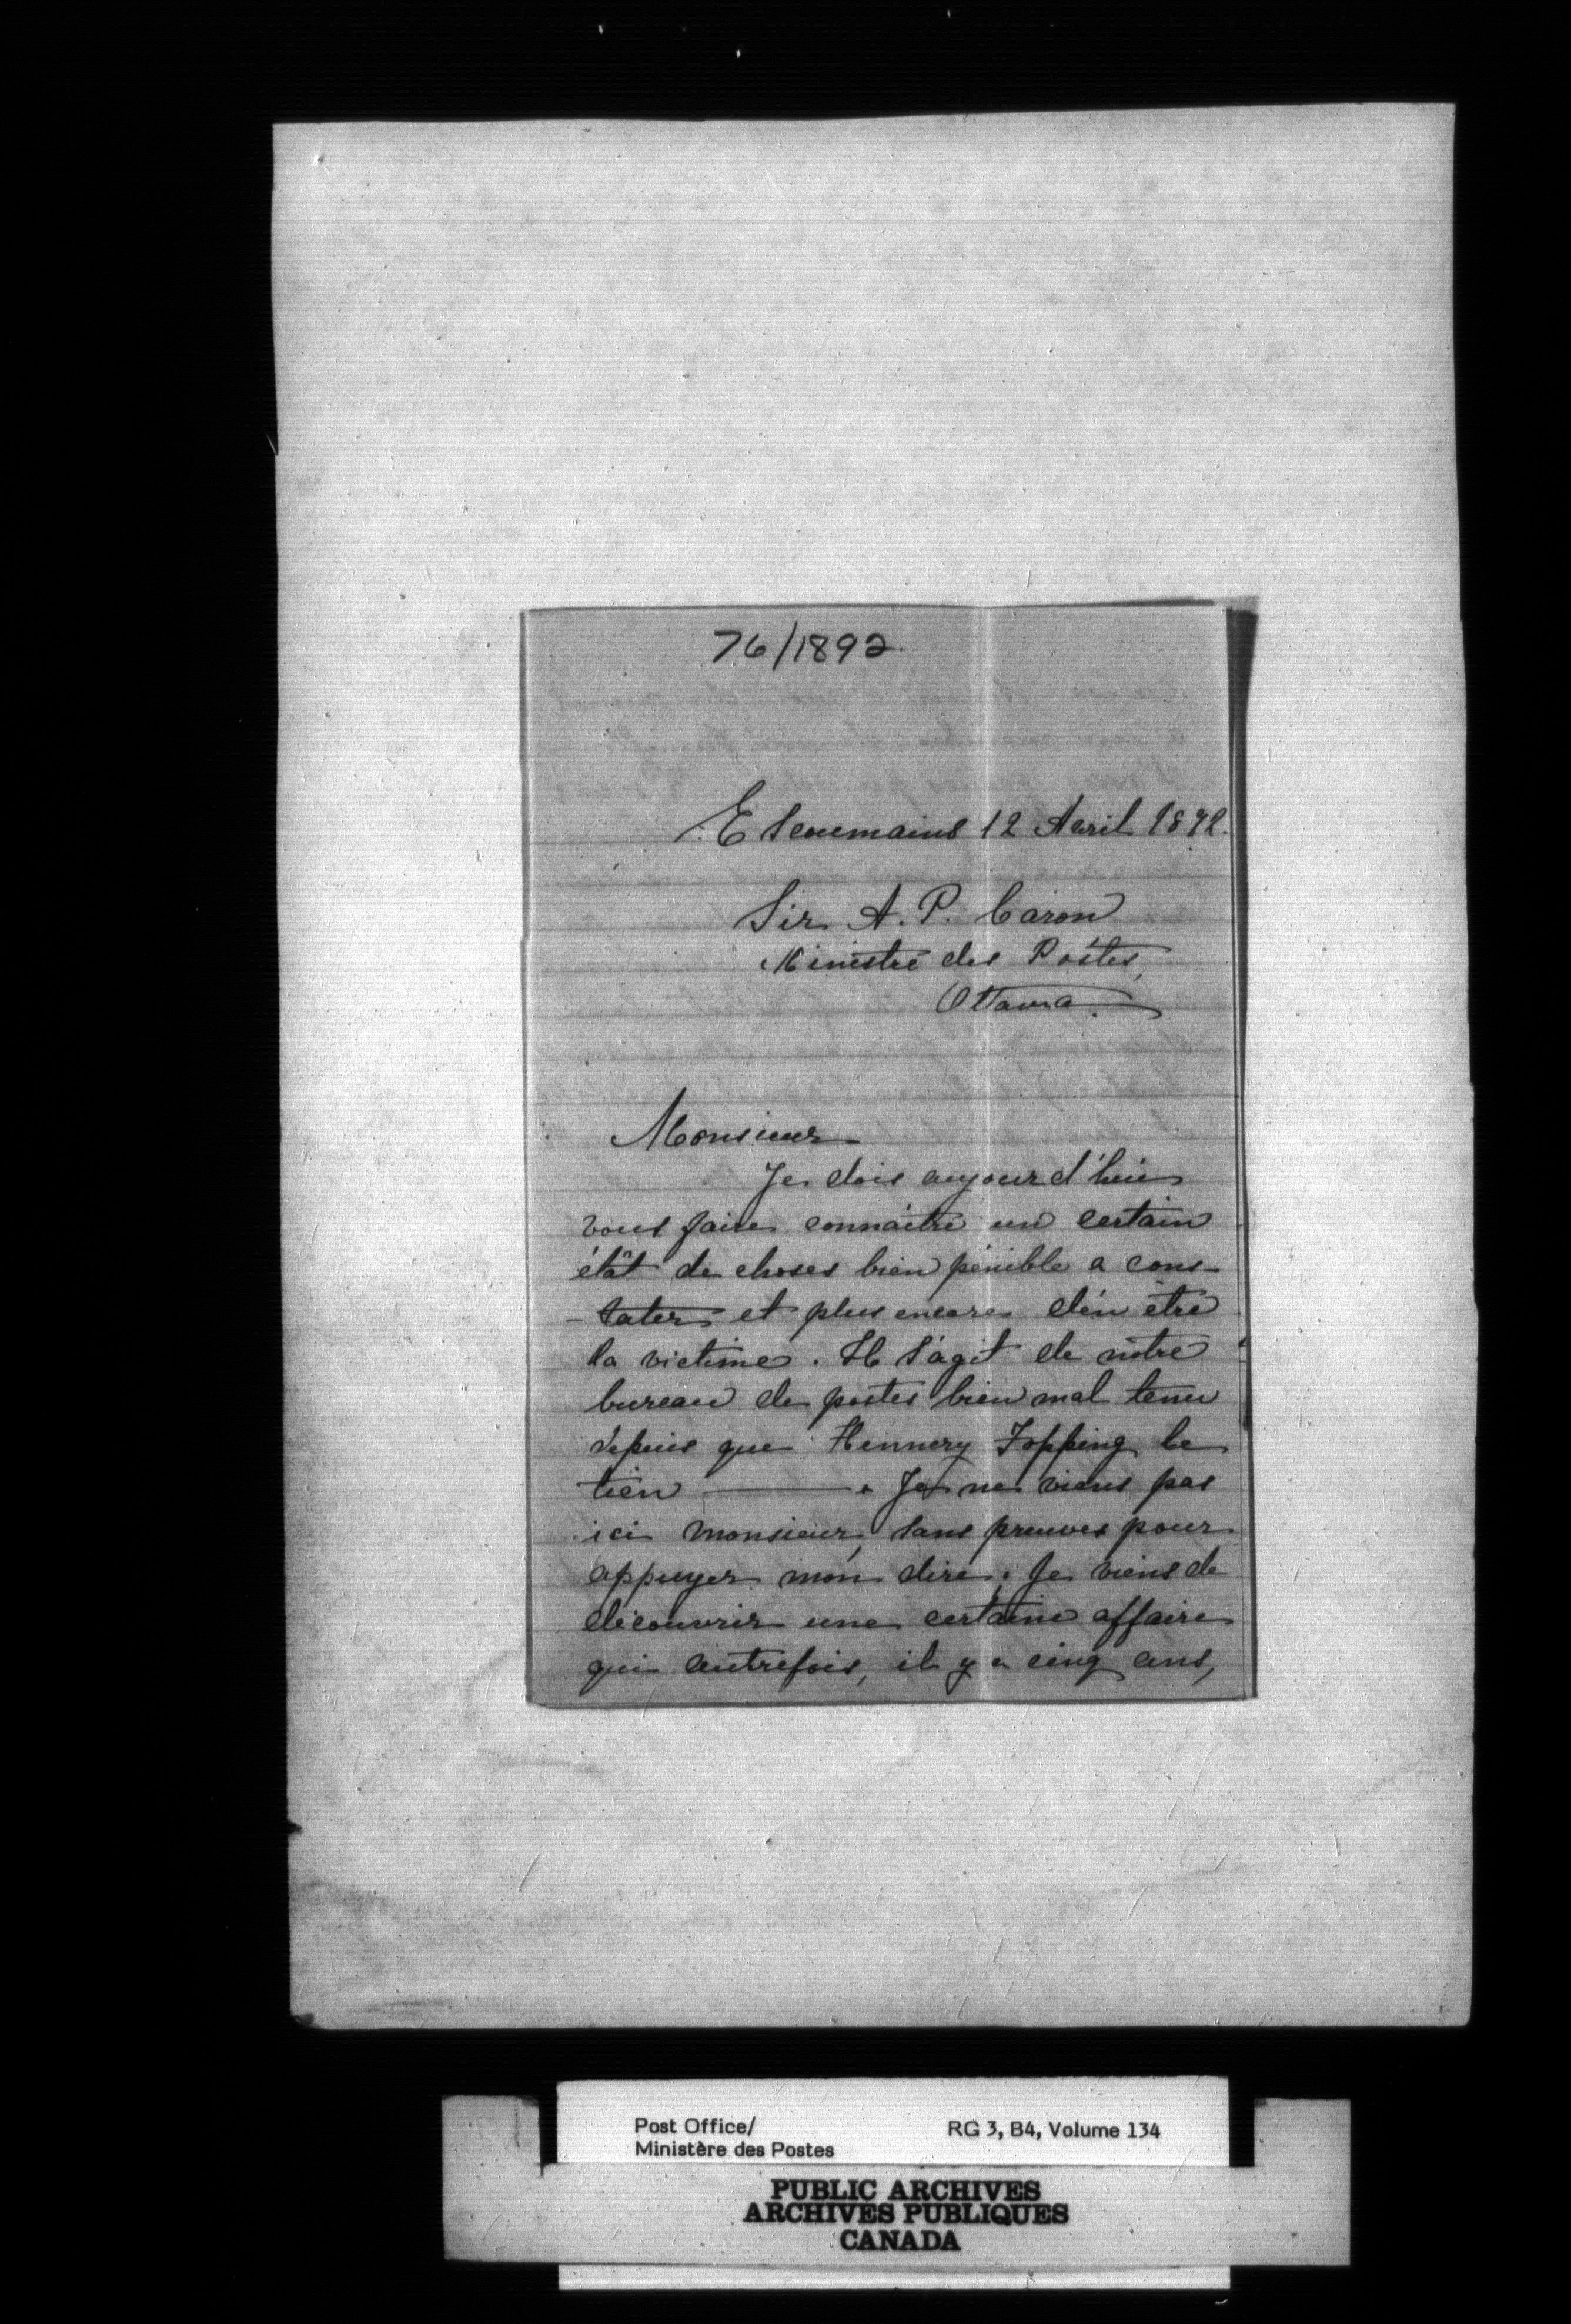 76/1892
Escoumains 12 Avril 1892.
Sir A. P. Caron
Ministre des Postes,
Ottawa.
Monsieur
Je dois aujourd'hui
vous faire connaitre un certain
étât de choses bien pénible a cons-
-tater et plus encore d'en être
la victime. Il s'agit de nôtre
bureau de postes bien mal tenu
depuis que Hennery Topping le
tien ——— . Je ne viens pas
ici monsieur, sans preuves pour
appuyer mon dire. Je viens de
découvrir une certaine affaire
qui autrefois, il y a cinq ans,
Post Office/ RG 3, B4, Volume 134
Ministère des Postes
PUBLIC ARCHIVES
ARCHIVES PUBLIQUES
CANADA